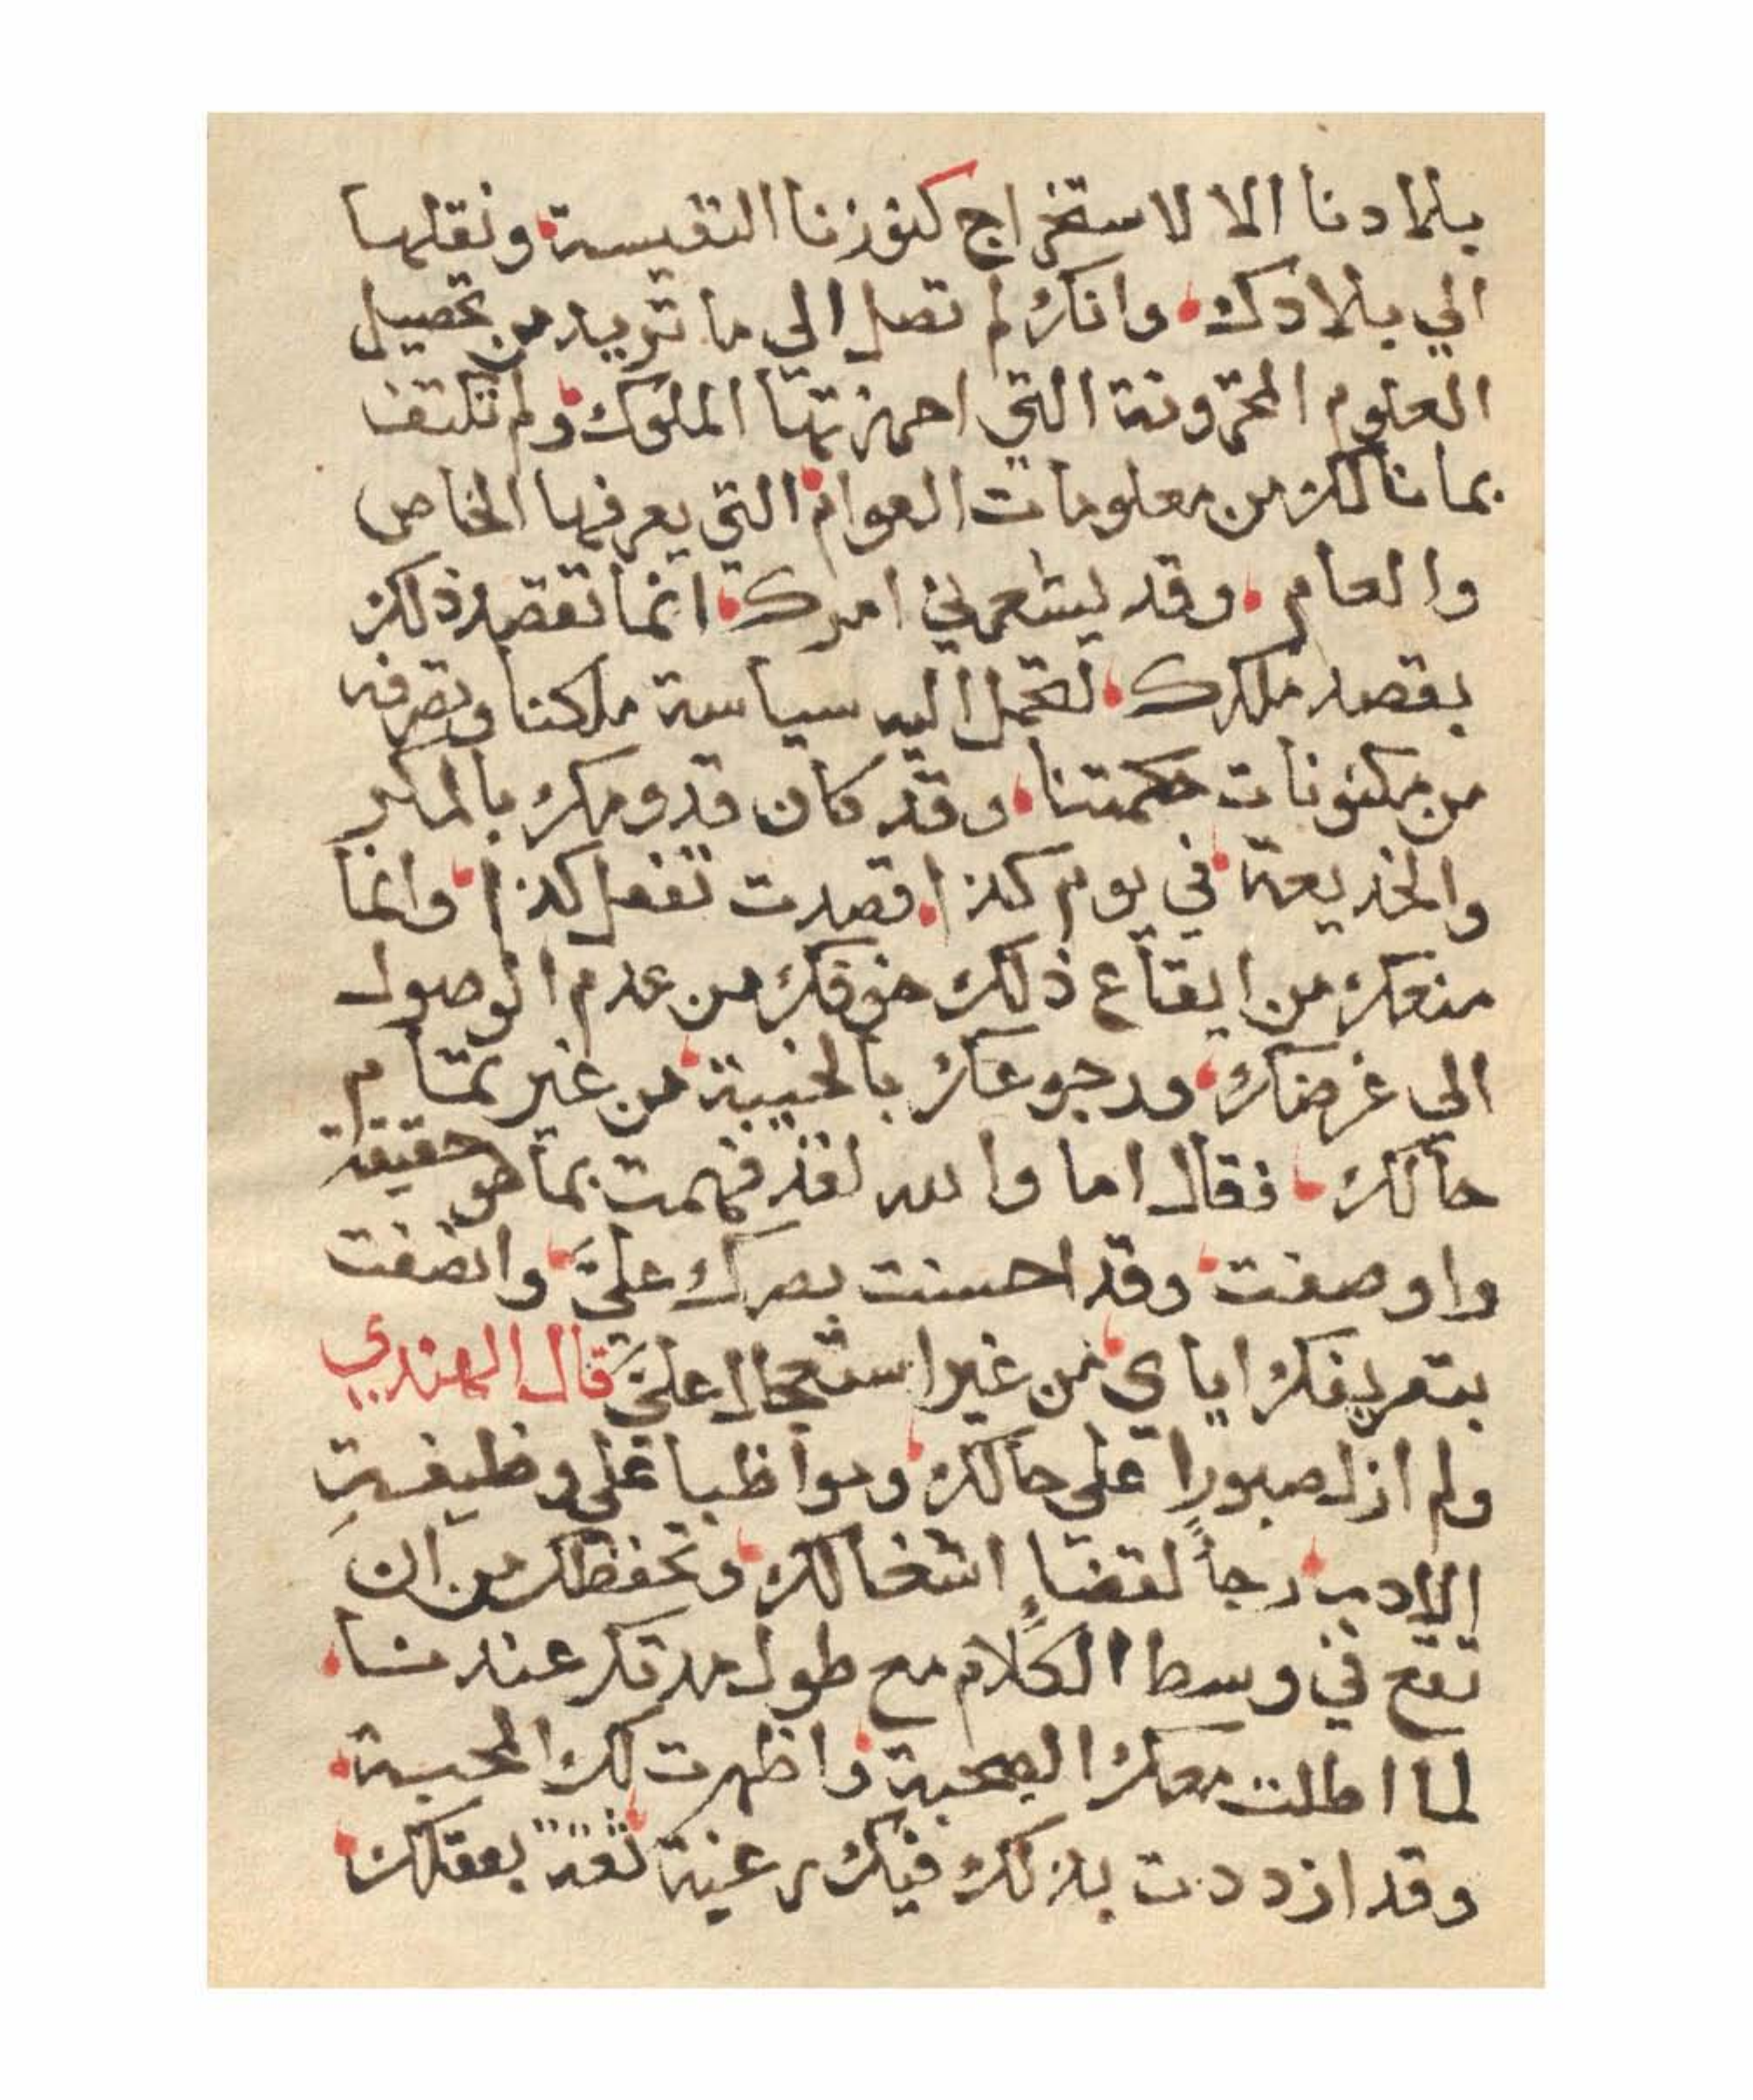 بلادنا الا لاستخراج كنوزنا النفيسة، ونقلها
الي بلادك، وانك لم تصل الي ما تريد من تحصيل
العلوم المخزونة التي احرزتها الملوك، ولم تكتف
بما نالك من معلومات العوام، التي يعرفها الخاص
والعام، وقد يشعرني امرك، انما تقصد ذلك
بقصد ملكك، لتحمل اليه سياسة ملكنا وتصرفه
من مكنونات حكمتنا، وقد كان قدومك بالمكر
والخديعة، في يوم كذا، قصدت تفعل كذا، وانما
منعك من ايقاع ذلك خوفك من عدم الوصول
الي غرضك، ورجوعك بالخيبة، من غير تمام
حالك، فقال اما والله لقد فهمت بما هو حقيقة
واوصفت، وقد احسنت بصرك عليَّ، واتضفت
بتعريفك اياي، من غير استعجال عليَّ قال الهندي
ولم ازل صبورا علي حالك، ومواظبا علي وظيفة
الادب، رجاً لقضاءٍ اشغالك، وتحفظك من ان
تقع في وسط الكلام مع طول مدتك عندنا،
لما اطلت معك الصحبة، واظهرت لك المحبة،
وقد ازددت بذلك فيك رغبة، ثقةً بعقلك،